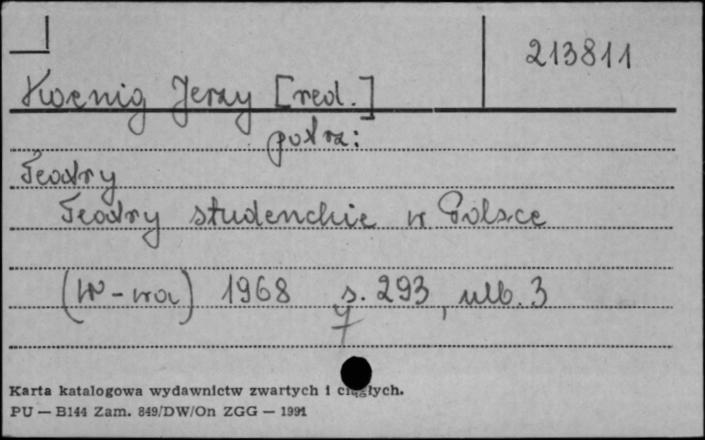 213811
Koenig Jerzy [red.]
patrz:
Teatry
Teatry studenckie w Polsce
(W-wa) 1968 s. 293, nlb. 3
Karta katalogowa wydawnictw zwartych i ciągłych.
PU — B144 Zam. 849/DW/On ZGG — 1991